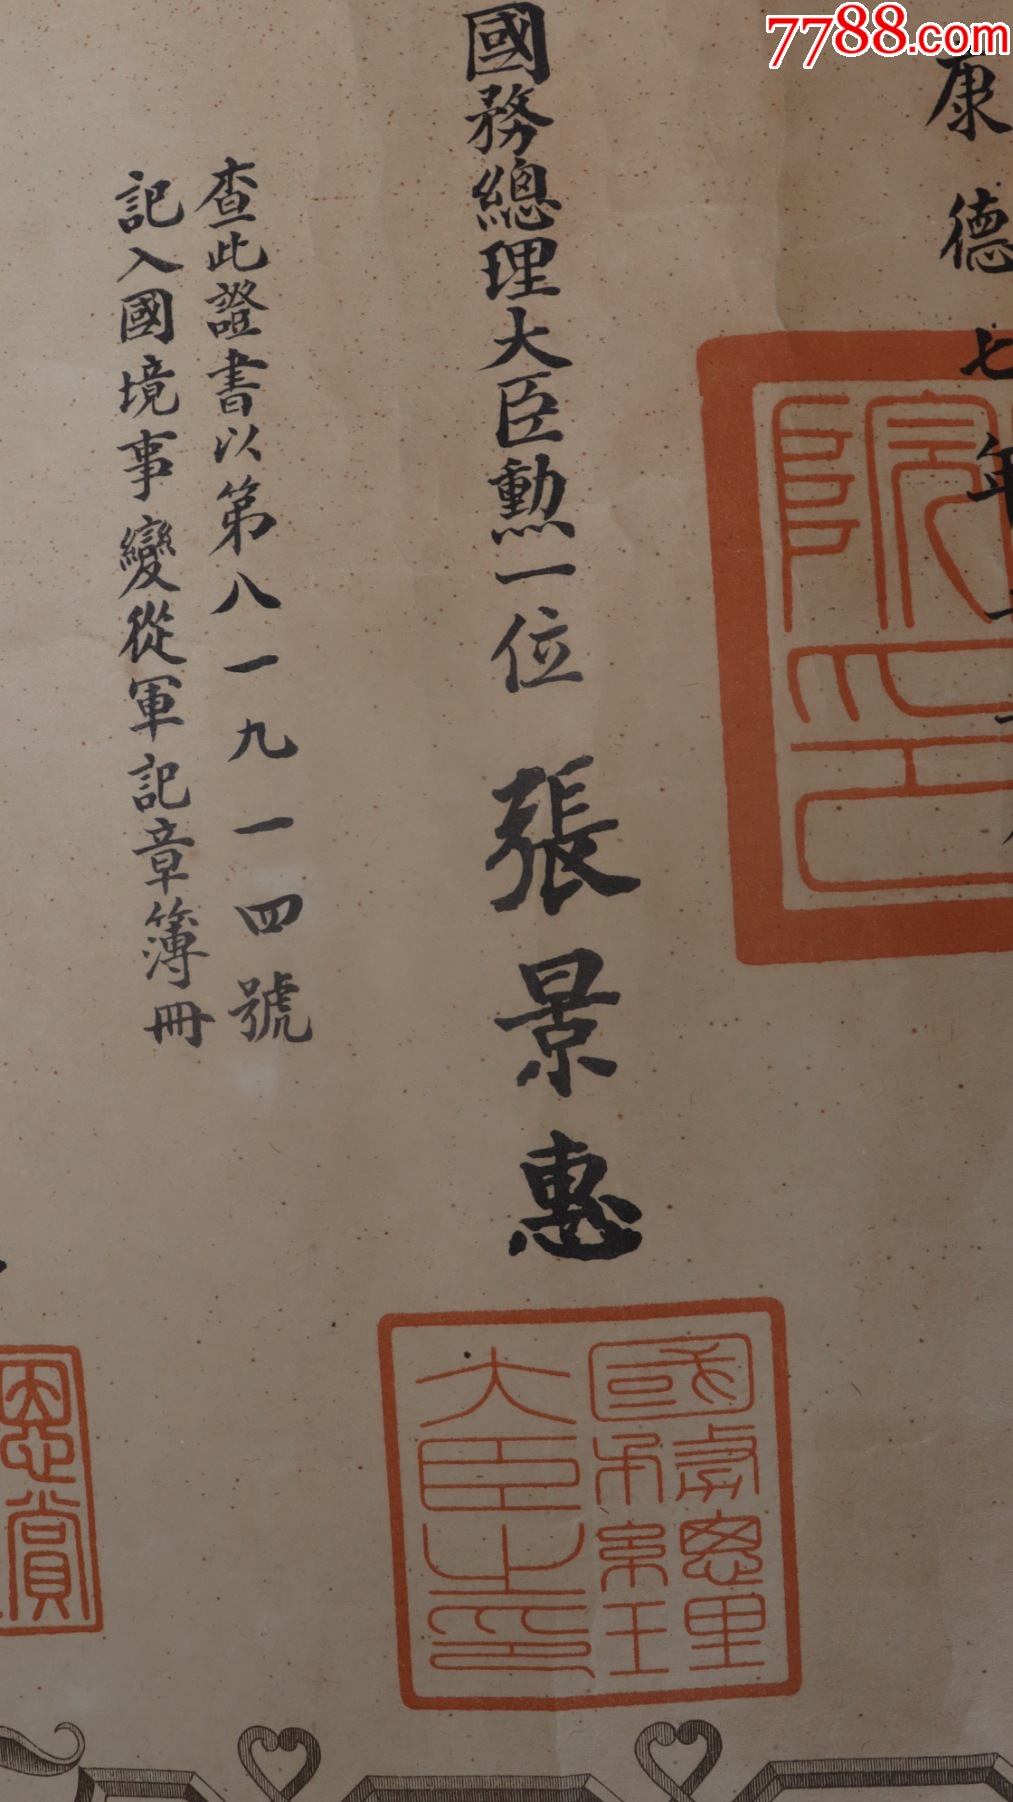 7788.com
康德七年
國務總理大臣勲一位 張景惠
查此證書以第八一九一四號
記入國境事變從軍記章簿冊
院
印
國務總理
大臣之印
恩賞